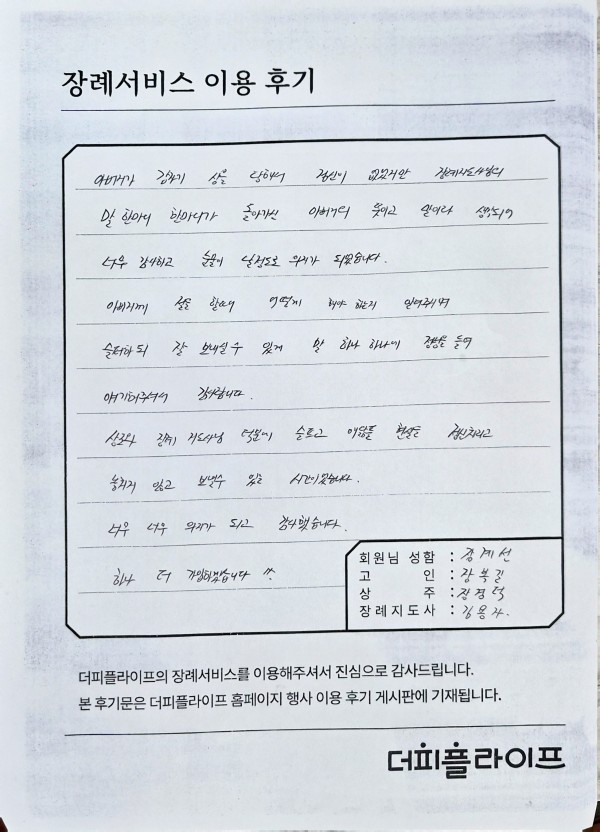 장례서비스 이용 후기
아버지가 갑자기 상을 당해서 정신이 없었지만 장례지도사님의
말 한마디 한마디가 돌아가신 아버지의 뜻이고 말이라 생각되어
너무 감사하고 눈물이 날정도로 의지가 되었습니다.
아버지께 절을 할때에 어떻게 해야 하는지 알려주시며
슬퍼하되 잘 보내실 수 있게 말 하나 하나에 정성을 들여
얘기해주셔서 감사합니다.
상조와 장례 지도사님 덕분에 슬프고 어려운 현실을 정신차리고
놓치지 않고 보낼수 있는 시간이었습니다.
너무 너무 의지가 되고 감사했습니다.
하나 더 가입하겠습니다 ^^.
회원님 성함 : 장계선
고 인 : 장복길
상 주 : 장경덕
장례지도사 : 김용
더피플라이프의 장례서비스를 이용해주셔서 진심으로 감사드립니다.
본 후기문은 더피플라이프 홈페이지 행사 이용 후기 게시판에 기재됩니다.
더피플라이프